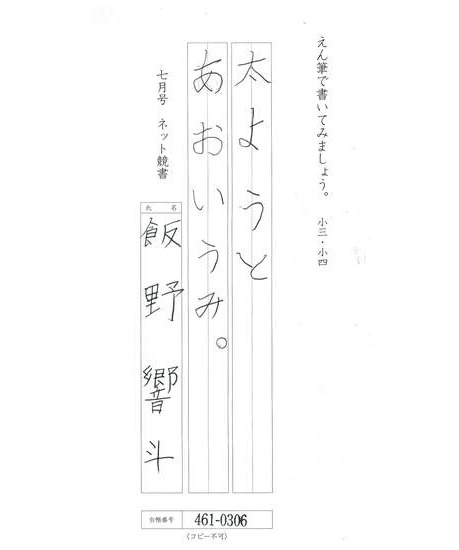 えん筆で書いてみましょう。 小三・小四
太ようと
あおいうみ。
七月号 ネット競書
氏名
飯野響斗
台帳番号 461-0306
(コピー不可)